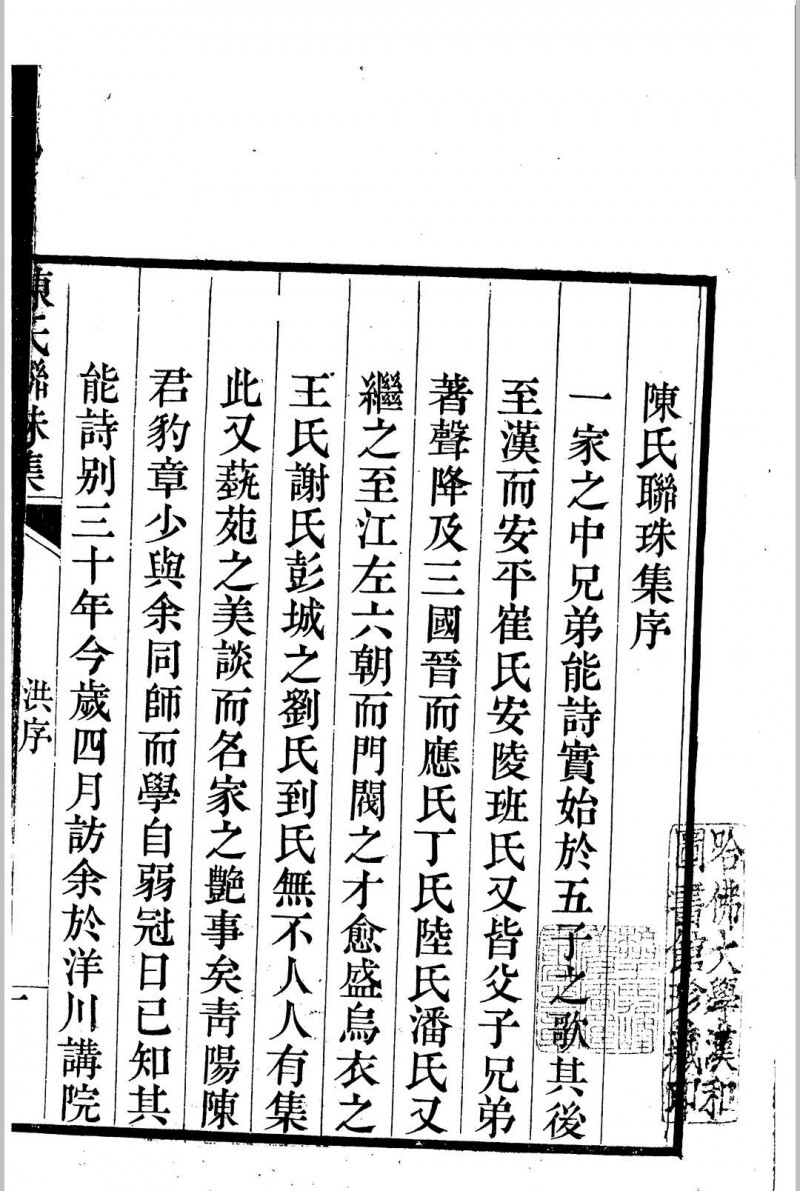 陳氏聯珠集序
一家之中兄弟能詩實始於五子之歌其後
至漢而安平崔氏安陵班氏又皆父子兄弟
著聲降及三國晉而應氏丁氏陸氏潘氏又
繼之至江左六朝而門閥之才愈盛烏衣之
王氏謝氏彭城之劉氏到氏無不人人有集
此又蓺苑之美談而名家之艷事矣靑陽陳
君豹章少與余同師而學自弱冠日已知其
能詩别三十年今歲四月訪余於洋川講院
陳氏聯珠集
洪序
一
哈佛大學漢和
圖書館珍藏印